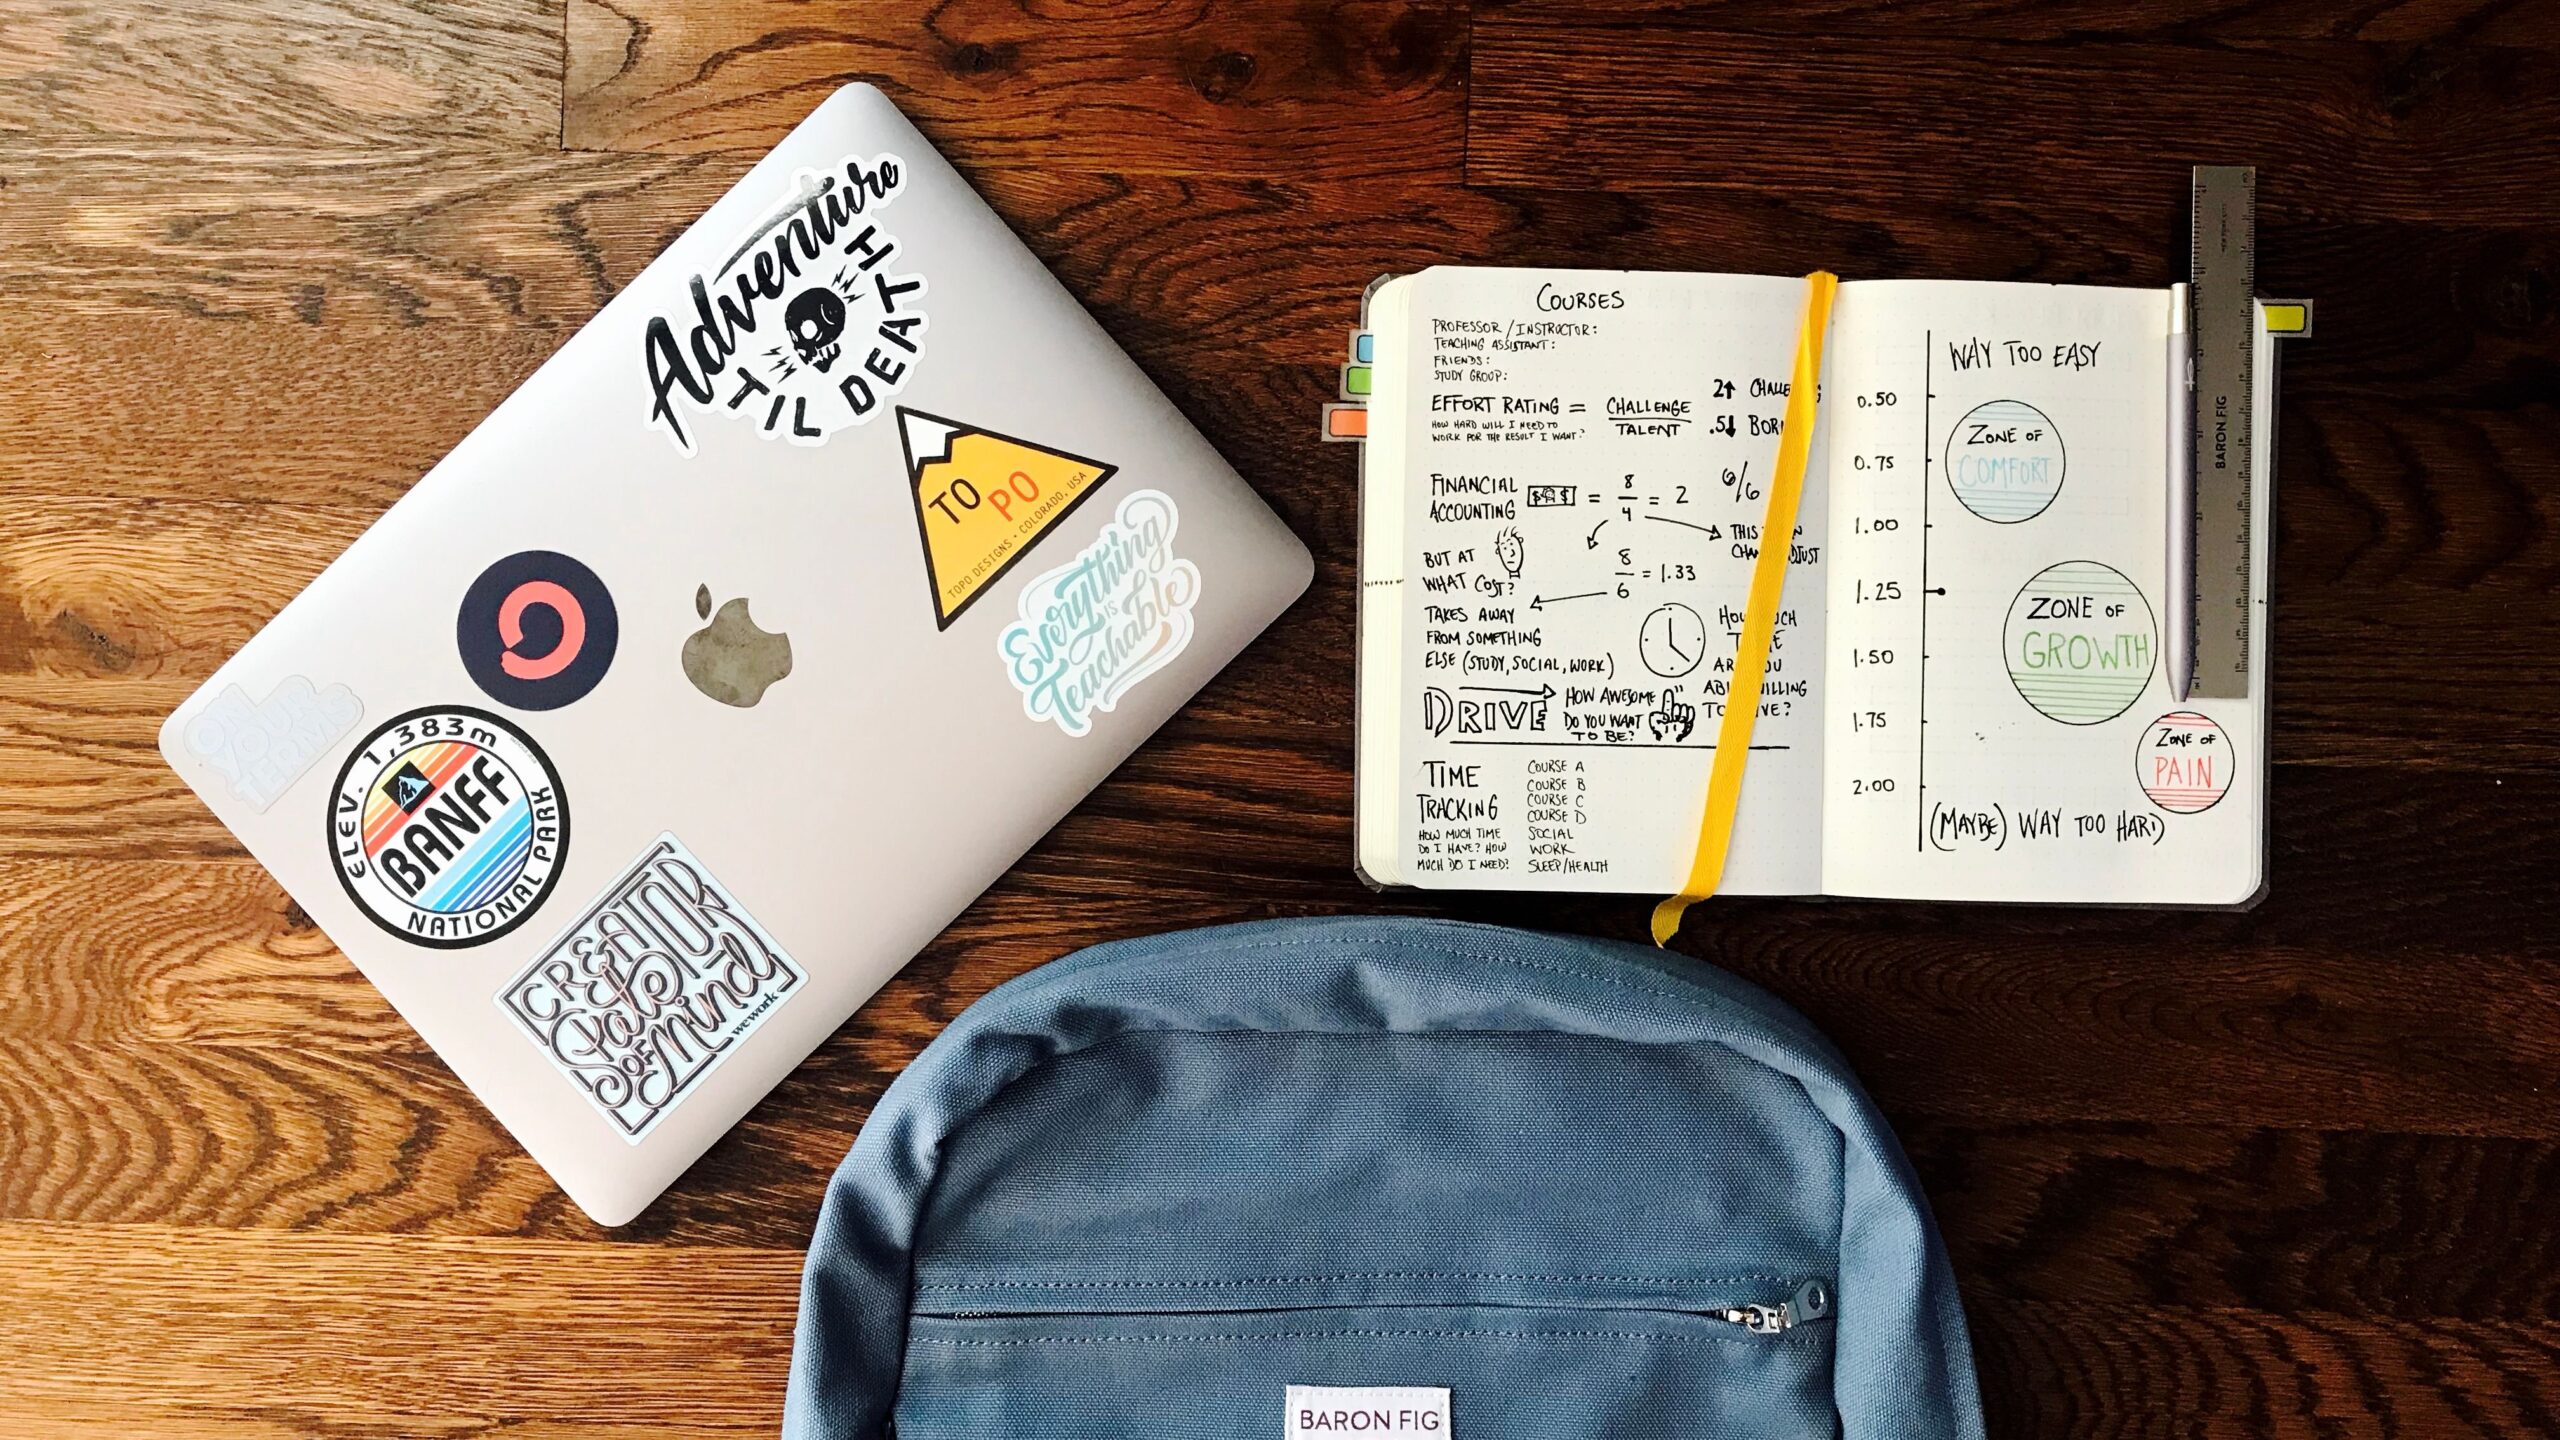 Adventure
TIL DEATH
TOPO
TOPO DESIGNS • COLORADO, USA
Everything
IS
Teachable
ON
YOUR
TERMS
ELEV. 1,383m
BANFF
NATIONAL PARK
CREATOR
State
OF
Mind
wework
COURSES
PROFESSOR/INSTRUCTOR:
TEACHING ASSISTANT:
FRIENDS:
STUDY GROUP:
EFFORT RATING = CHALLENGE
TALENT
HOW HARD WILL I NEED TO
WORK FOR THE RESULT I WANT?
2↑
.5↓
FINANCIAL
ACCOUNTING
$ $ = 8/4 = 2
6/6
THIS
BUT AT
WHAT COST?
8/6 = 1.33
TAKES AWAY
FROM SOMETHING
ELSE (STUDY, SOCIAL, WORK)
DRIVE
HOW AWESOME
DO YOU WANT
TO BE?
TIME
TRACKING
HOW MUCH TIME
DO I HAVE? HOW
MUCH DO I NEED?
COURSE A
COURSE B
COURSE C
COURSE D
SOCIAL
WORK
SLEEP/HEALTH
WAY TOO EASY
0.50
0.75
1.00
1.25
1.50
1.75
2.00
ZONE OF
COMFORT
ZONE OF
GROWTH
ZONE OF
PAIN
(MAYBE) WAY TOO HARD
BARON FIG
BARON FIG